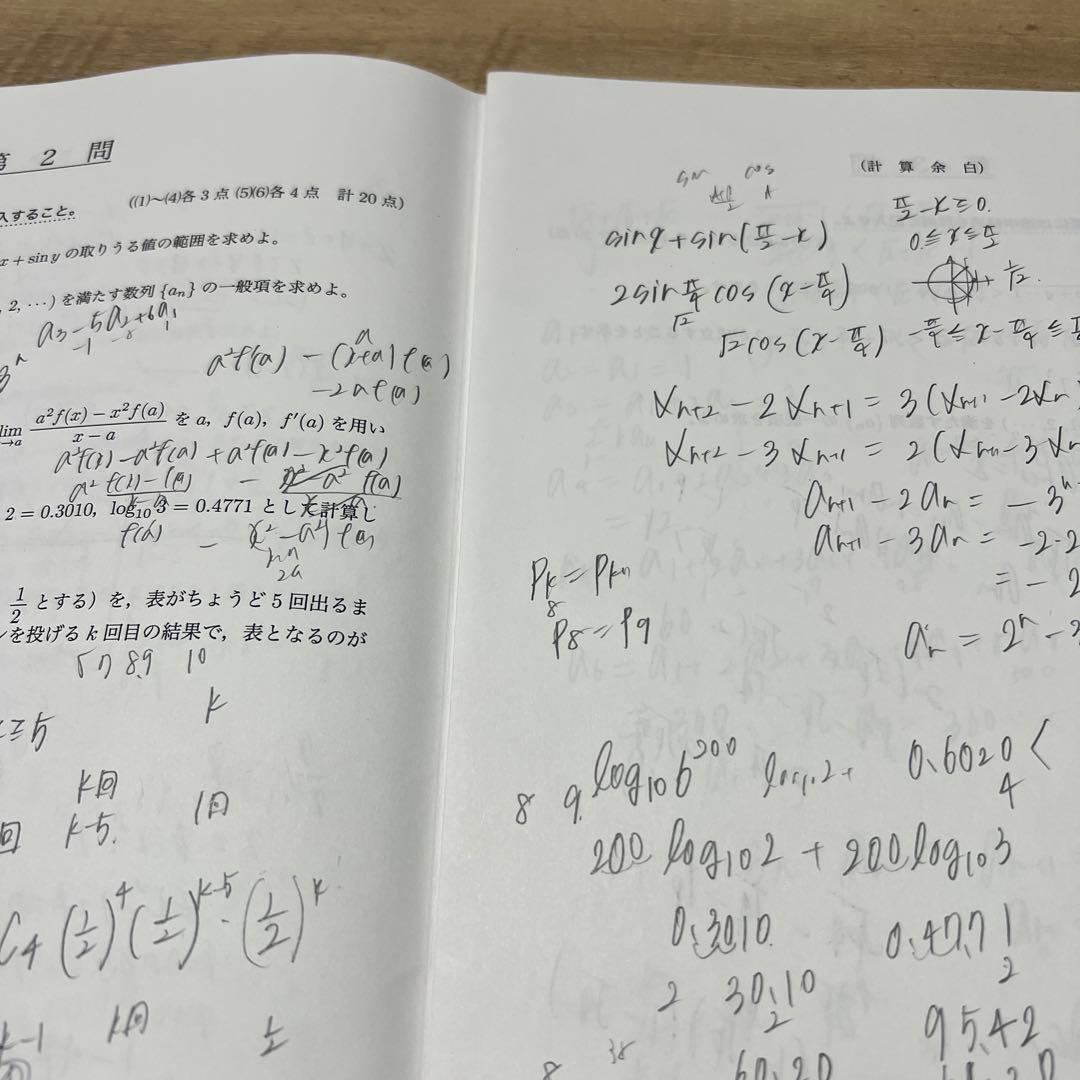 第 2 問
((1)～(4)各 3 点 (5)(6)各 4 点 計 20 点)
入すること。
x + sin y の取りうる値の範囲を求めよ。
2, ···) を満たす数列 {aₙ} の一般項を求めよ。
a₃ - 5a₂ + 6a₁
a²f(a) - (x+a) f(a)
-2a f(a)
lim →a (a²f(x) − x²f(a))/(x − a) を a, f(a), f′(a) を用い
a²f(x) - a²f(a) + a²f(a) - x²f(a)
2 = 0.3010, log₁₀ 3 = 0.4771 として計算し
2a
1/2 とする) を, 表がちょうど 5 回出るま
ンを投げる k 回目の結果で, 表となるのが
8.9 10
k
≧5
k回
1回
回 k-5.
C₄ (1/2)⁴ (1/2)ᵏ⁻⁵ · (1/2)ᵏ
k-1 k回 1/2
(計 算 余 白)
sin cos
π/2 - x ≧ 0.
sin x + sin(π/2 - x)
0 ≦ x ≦ π/2
2 sin π/4 cos (x - π/4)
1/√2.
√2
√2 cos (x - π/4) -π/4 ≦ x - π/4 ≦ π
xₙ₊₂ - 2xₙ₊₁ = 3(xₙ₊₁ - 2xₙ)
xₙ₊₂ - 3xₙ₊₁ = 2(xₙ₊₁ - 3xₙ
aₙ₊₁ - 2aₙ = -3ⁿ
aₙ₊₁ - 3aₙ = -2·2
= -2
Pₖ = Pₖ₊₁
8
P8 = P9
aₙ = 2ⁿ - 3
log₁₀6²⁰⁰ log₁₀2+ 0.6020 <
8 9. 4
200 log₁₀2 + 200 log₁₀3
0.3010 0.4771
2 30.10 2
2 95.42
38
8 60.20